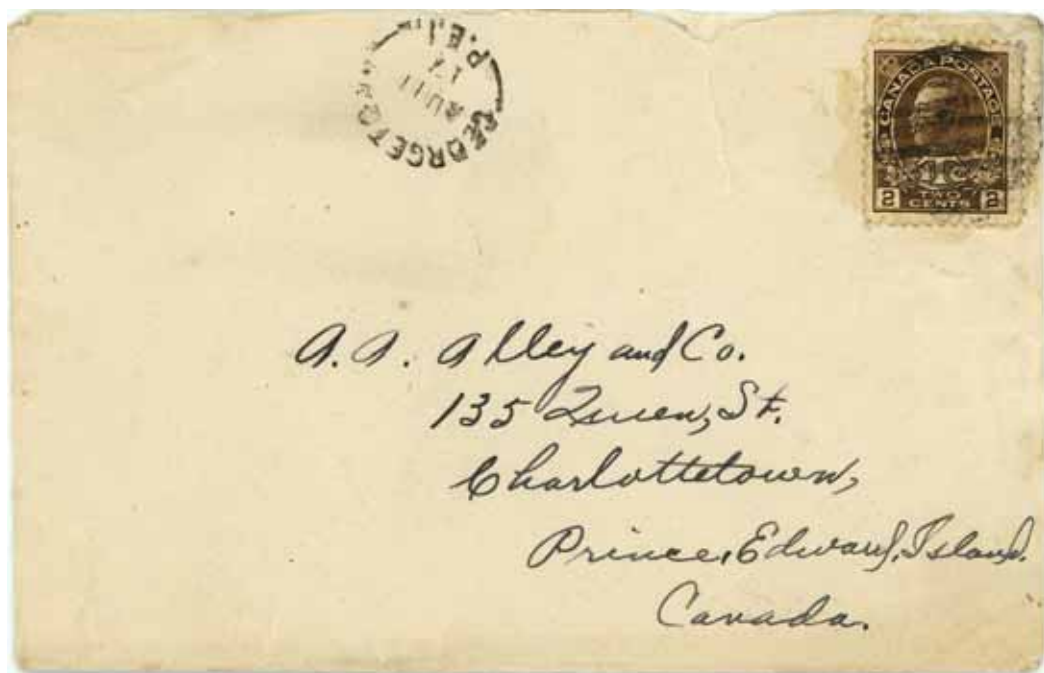 GEORGETO
AU 11
17
P.E.I.
CANADA POSTAGE
1Tc
2 TWO CENTS 2
A. A. Alley and Co.
135 Queen, St.
Charlottetown,
Prince, Edward, Island.
Canada.